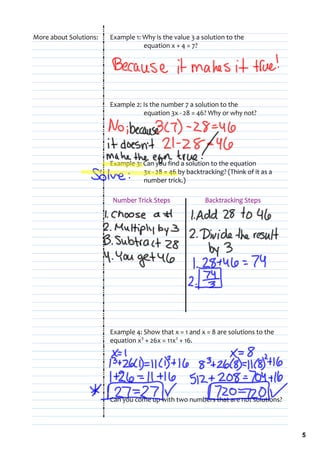 More about Solutions:
Example 1: Why is the value 3 a solution to the
equation x + 4 = 7?
Because it makes it true!
Example 2: Is the number 7 a solution to the
equation 3x - 28 = 46? Why or why not?
No; because 3(7) - 28 = 46
it doesn't 21 - 28 ≠ 46
make the eqn true.
Example 3: Can you find a solution to the equation
Solve: 3x - 28 = 46 by backtracking? (Think of it as a
number trick.)
Number Trick Steps Backtracking Steps
1. Choose a # 1. Add 28 to 46
2. Multiply by 3 2. Divide the result
3. Subtract 28 by 3
4. You get 46 1. 28+46 = 74
2. 74/3
Example 4: Show that x = 1 and x = 8 are solutions to the
equation x³ + 26x = 11x² + 16.
x=1 x=8
1³+26(1)=11(1)²+16 8³+26(8)=11(8)²+16
1+26=11+16 512+208=704+16
* 27=27 ✓ 720=720 ✓
Can you come up with two numbers that are not solutions?
5